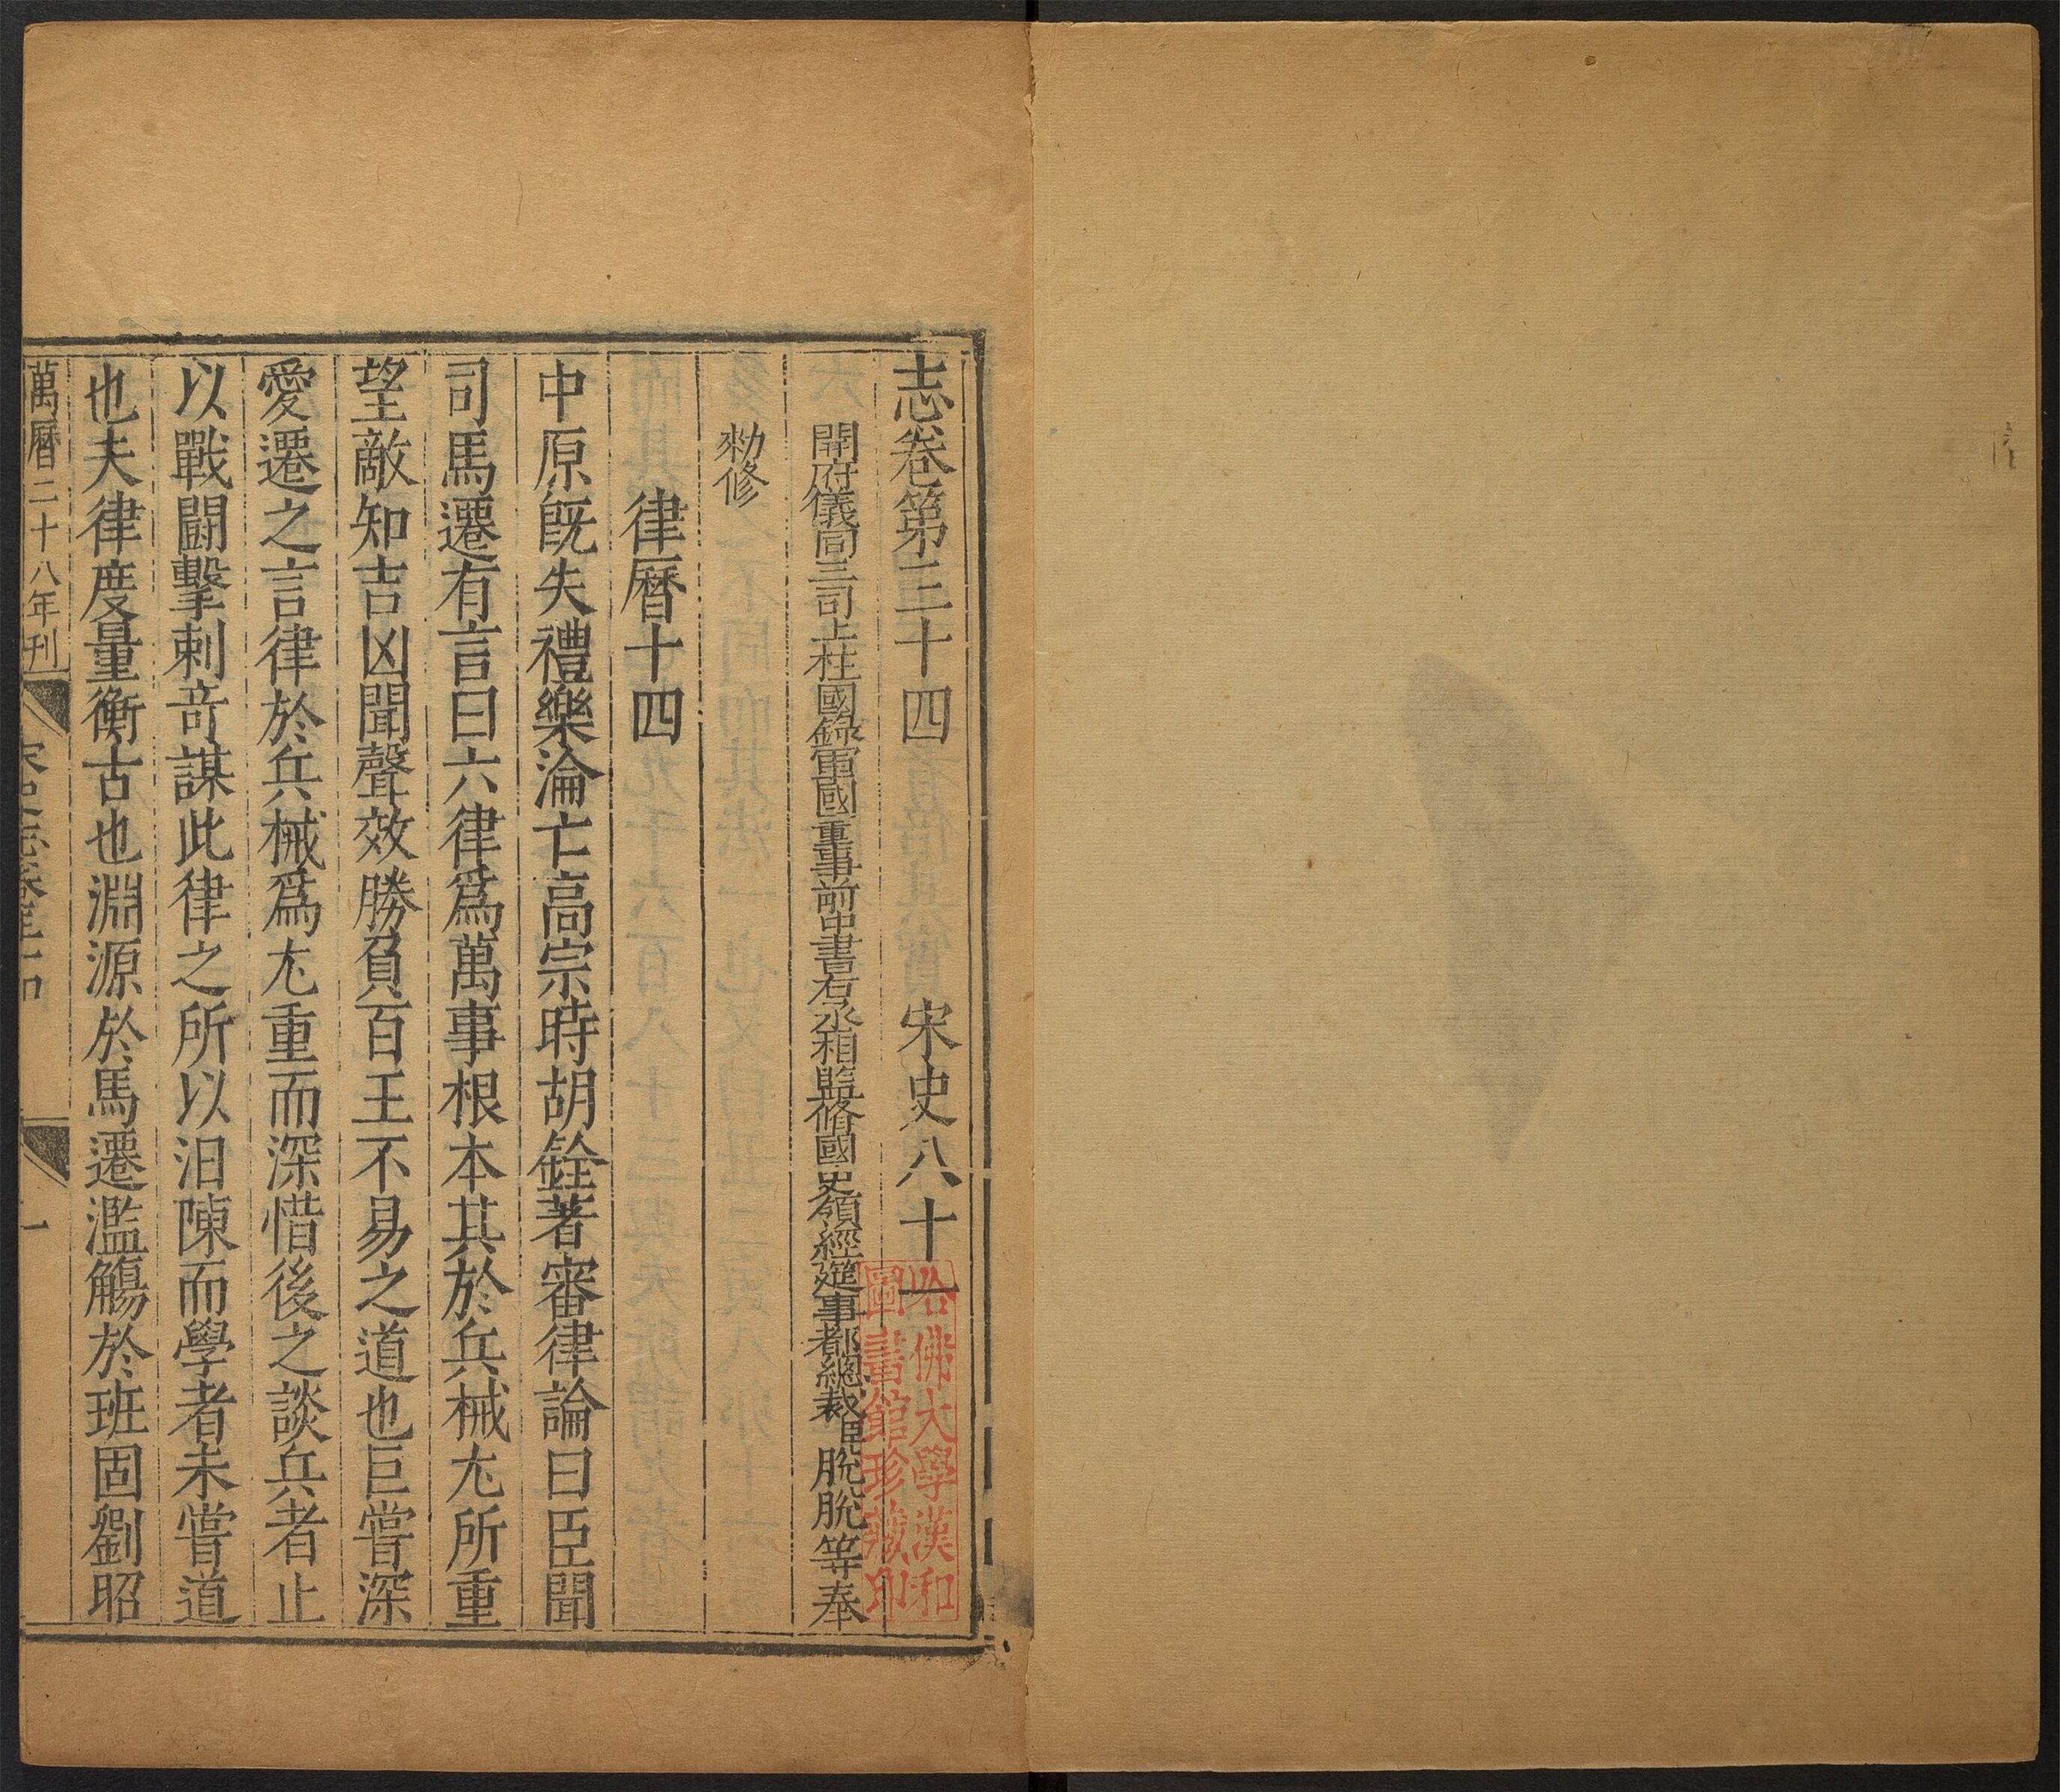 志卷第三十四　宋史八十一
開府儀同三司上柱國錄軍國重事前中書右丞相監修國史領經筵事都總裁臣脫脫等奉
勑修
律曆十四
中原旣失禮樂淪亡高宗時胡銓著審律論曰臣聞
司馬遷有言曰六律爲萬事根本其於兵械尤所重
望敵知吉凶聞聲效勝負百王不易之道也臣嘗深
愛遷之言律於兵械爲尤重而深惜後之談兵者止
以戰鬪擊刺竒謀此律之所以汨陳而學者未嘗道
也夫律度量衡古也淵源於馬遷濫觴於班固劉昭
萬曆二十八年刊
宋史志卷三十四
一
哈佛大學漢和
圖書館珍藏印